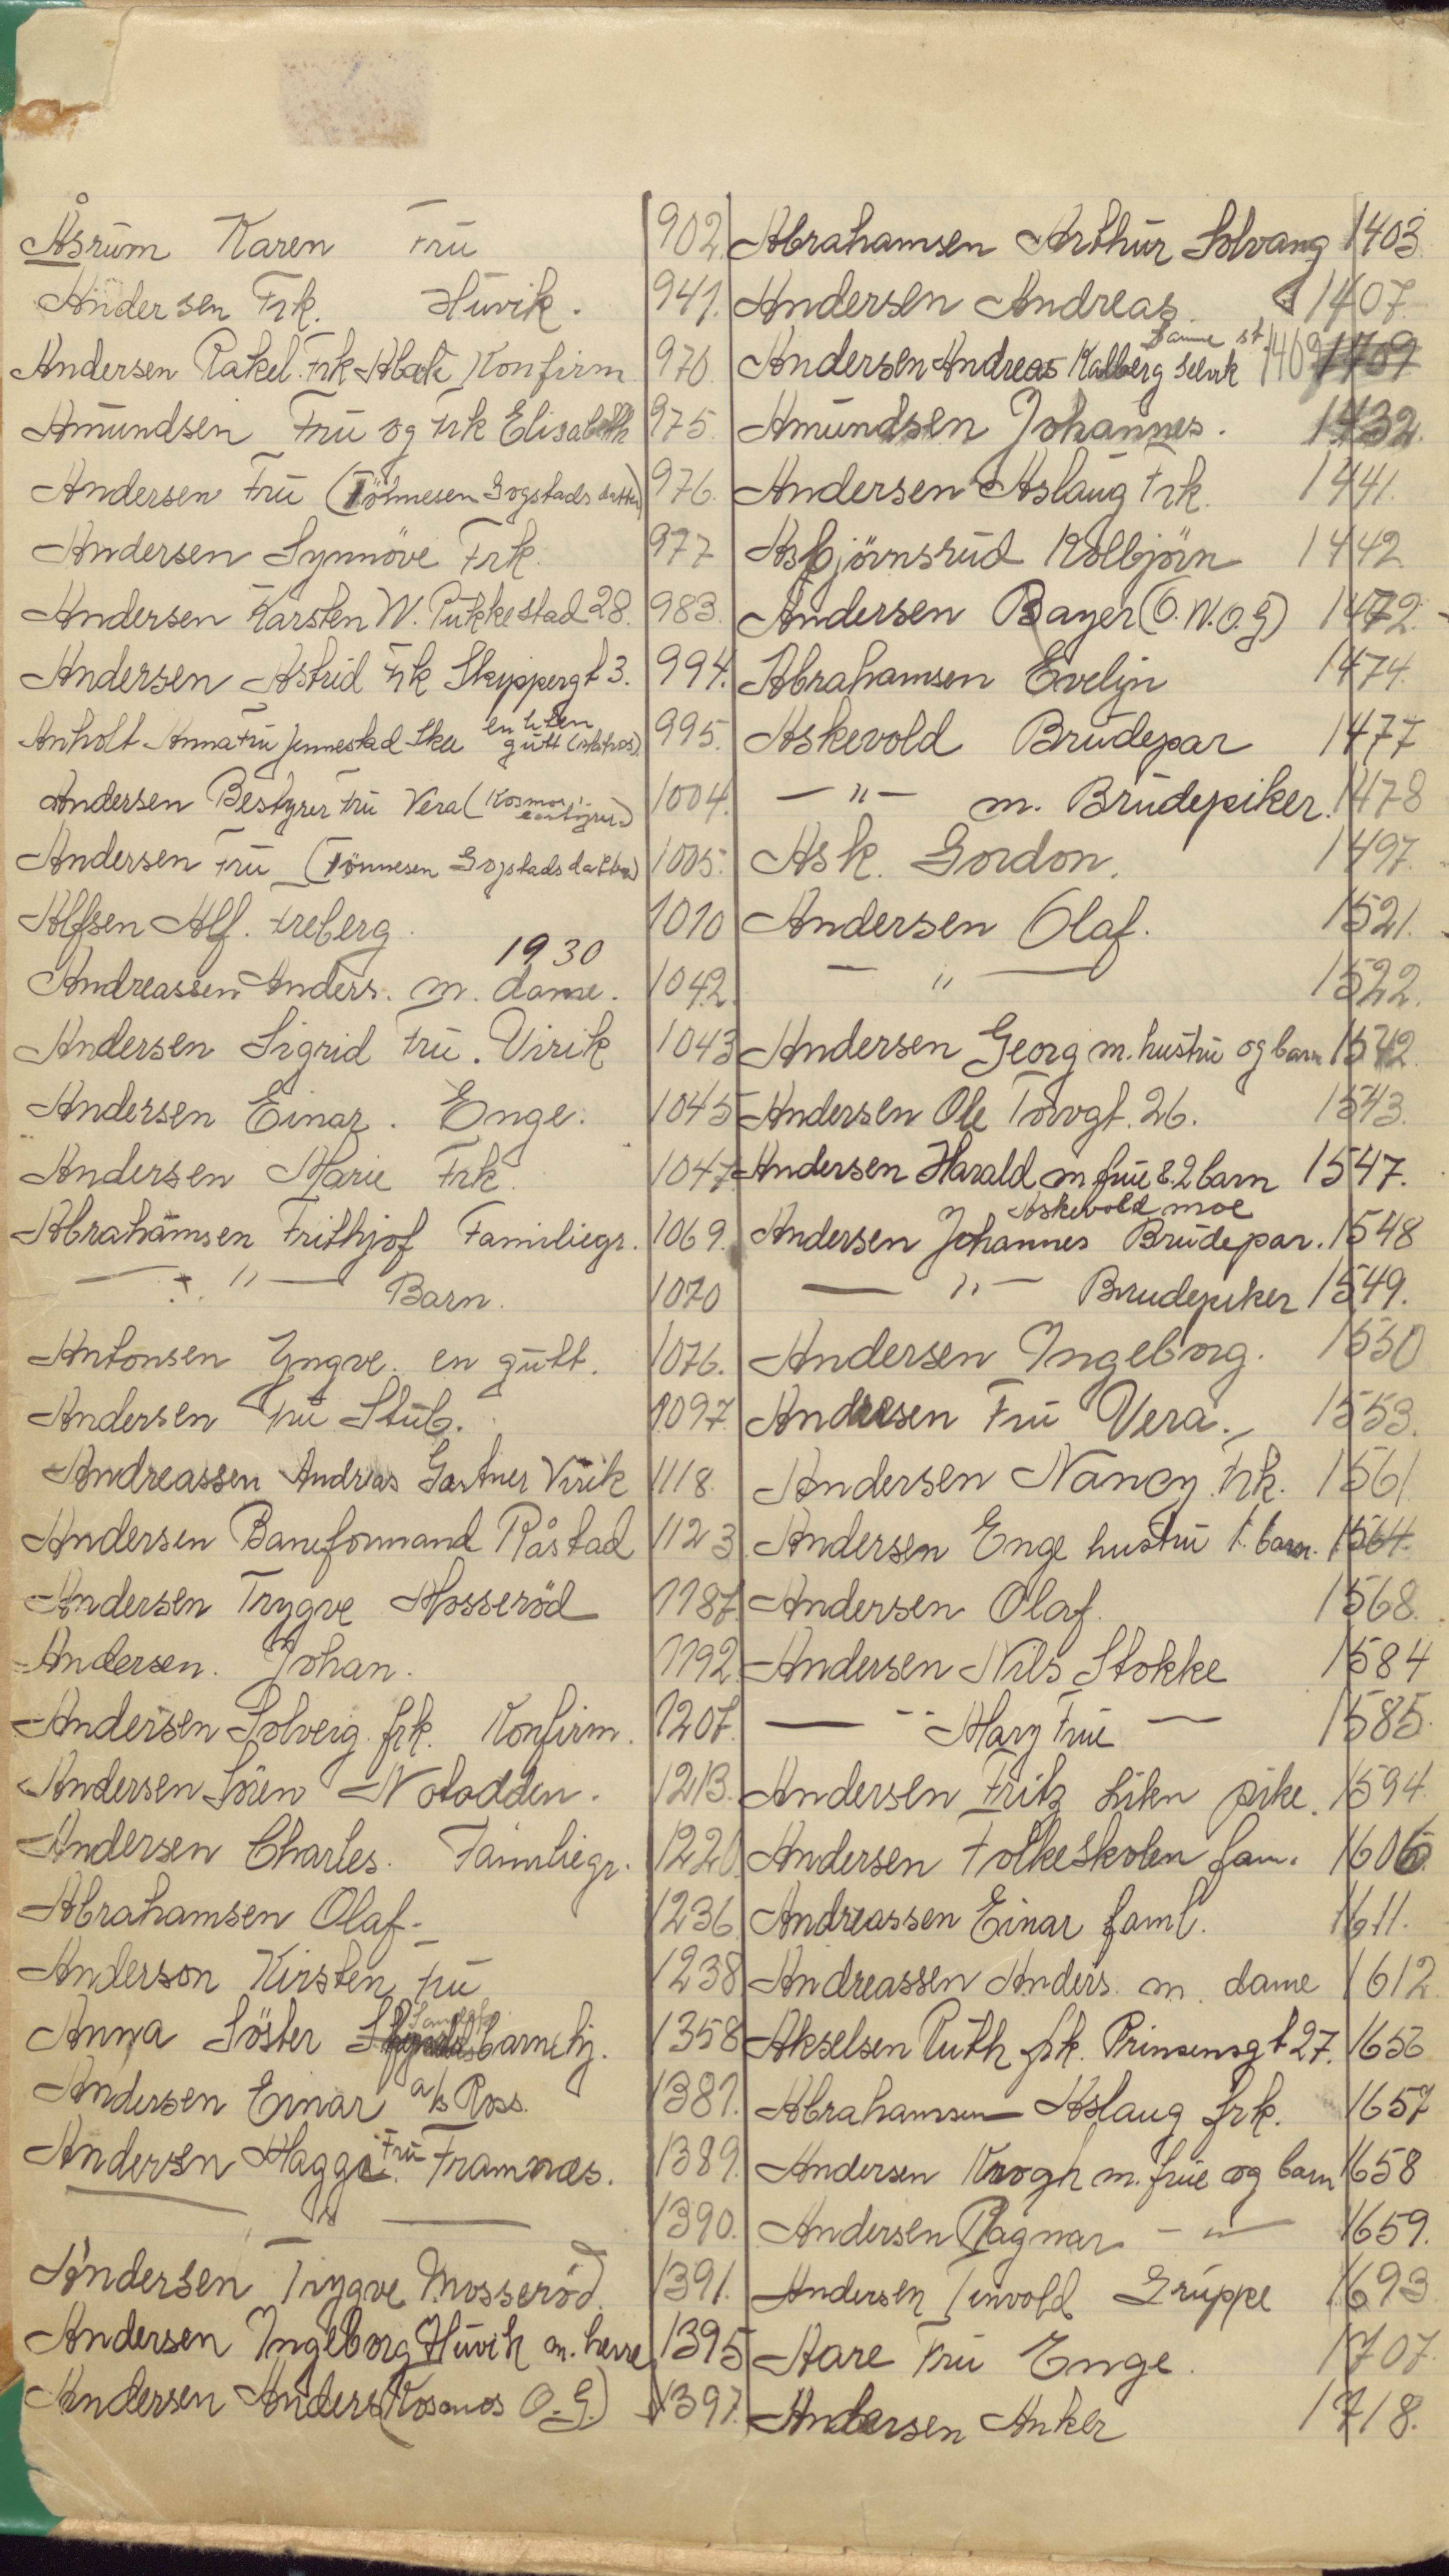 Åsrum Karen Fru 902.
Andersen Frk. Huvik. 941.
Andersen Rakel. Frk Konfirm 970
Amundsen Fru og Frk Elisabeth 975.
Andersen Fru (Tönnesen Gogstads datter) 976.
Andersen Synnöve Frk. 977
Andersen Karsten W. Pukkestad 28. 983.
Andersen Astrid Frk Skippergt 3. 994.
Anholt Anna Fru Jennestad Skee en liten gutt 995.
Andersen Bestyrer Fru Vera (Kosmos 1004.
Andersen Fru (Tönnesen Gogstads datter) 1005.
Alfsen Alf. Freberg. 1010
1930
Andreassen Anders. m. dame. 1042.
Andersen Sigrid Fru. Virik 1043
Andersen Einar. Enge. 1045
Andersen Marie Frk. 1047.
Abrahamsen Frithjof Familiegr. 1069.
— " — Barn. 1070
Antonsen Yngve. en gutt. 1076.
Andersen Fru Stub. 1097
Andreassen Andreas Gartner Virik 1118.
Andersen Baneformand Råstad 1123.
Andersen Trygve Mosseröd 1187.
Andersen. Johan. 1192
Andersen Solveig. frk. Konfirm. 1207.
Andersen Sören Notodden. 1213.
Andersen Charles. Familiegr. 1220
Abrahamsen Olaf. 1236
Anderson Kirsten Fru 1238
Anna Söster barnehj. 1358
Andersen Einar a/s Ross. 1381.
Andersen Hagga Fru Framnæs. 1389.
— " — 1390.
Andersen Trygve Mosseröd. 1391.
Andersen Ingeborg Huvik m. herre 1395
Andersen Anders (Kosmos O.G.) 1397.
Abrahamsen Arthur Solvang 1403.
Andersen Andreas 1407.
Andersen Andreas Kalberg Selvik Samme st 1409 1709
Amundsen Johannes. 1432.
Andersen Aslaug Frk. 1441.
Asbjörnsrud Kolbjörn 1442
Andersen Bayer (O.W.O.G) 1472.
Abrahamsen Evelyn 1474.
Askevold Brudepar 1477
— " — m. Brudepiker. 1478
Ask. Gordon. 1497.
Andersen Olaf. 1521.
— " — 1522.
Andersen Georg m. hustru og barn 1542.
Andersen Ole Torvgt. 26. 1543.
Andersen Harald m frue & 2 barn 1547.
Askevold moe
Andersen Johannes Brudepar. 1548
— " — Brudepiker 1549.
Andersen Ingeborg. 1550
Andersen Fru Vera. 1553.
Andersen Nancy. Frk. 1561
Andersen Enge hustru 1. barn. 1564.
Andersen Olaf. 1568.
Andersen Nils Stokke 1584
— " — Mary Frue — 1585.
Andersen Fritz Liten pike. 1594.
Andersen Folkeskolen fam. 1606.
Andreassen Einar faml. 1611.
Andreassen Anders. m. dame 1612
Akselsen Ruth frk. Prinsensgt 27. 1653
Abrahamsen Aslaug frk. 1657
Andersen Krogh m. frue og barn 1658
Andersen Ragnar — " — 1659.
Andersen Tinvold Gruppe 1693
Aare Fru Enge. 1707.
Andersen Anker 1718.